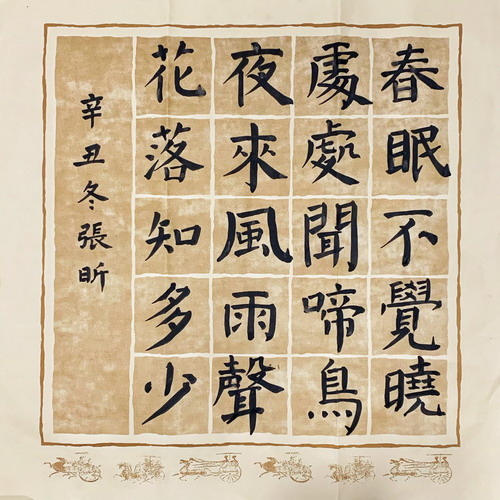 春眠不覺曉
處處聞啼鳥
夜來風雨聲
花落知多少
辛丑冬張昕